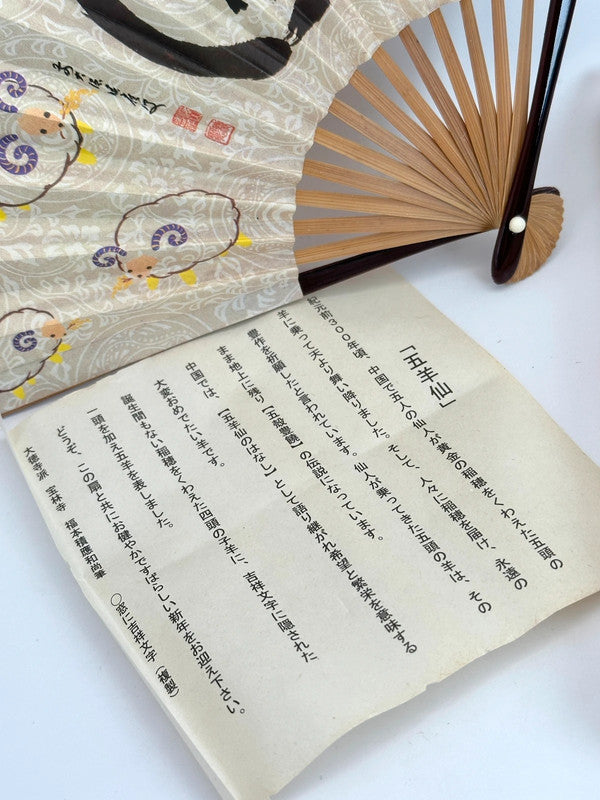 「五羊仙」
紀元前300年頃、中国で五人の仙人が黄金の稲穂をくわえた五頭の
羊に乗って天より舞い降りました。そして、人々に稲穂を届け、永遠の
豊作を祈願したと言われています。仙人が乗ってきた五頭の羊は、その
まま地上に残り【五穀豊穣】の伝説になっています。
中国では、【五羊仙のはなし】として語り継がれ希望と繁栄を意味する
大変おめでたい羊です。
誕生間もない稲穂をくわえた四頭の子羊に、吉祥文字に隠された
一頭を加え五羊を表しました。
どうぞ、この扇と共にお健やかですばらしい新年をお迎え下さい。
大徳寺派 宝林寺 福本積應和尚筆 ○窓に吉祥文字（複製）